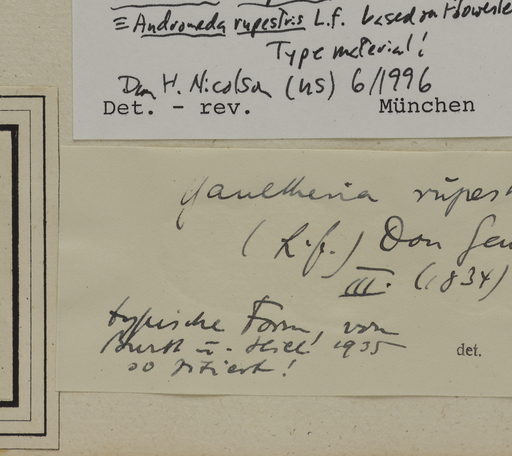 ≡ Andromeda rupestris L.f. based on
Type material!
Dan H. Nicolson (US) 6/1996
Det. - rev. München
Gaultheria rupest
(L.f.) Don Gen
III. (1834)
typische Form, von
Burtt u. Hill 1935
so zitiert!
det.